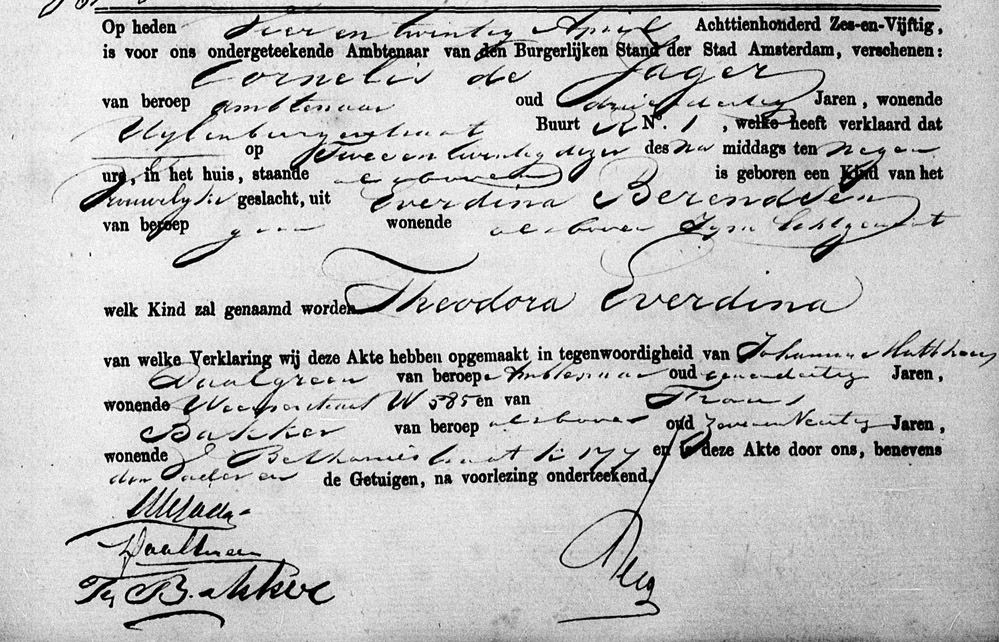 Op heden Vier en twintig April Achttienhonderd Zes-en-Vijftig,
is voor ons ondergeteekende Ambtenaar van den Burgerlijken Stand der Stad Amsterdam, verschenen:
Cornelis de Jager
van beroep ambtenaar oud drie en dertig Jaren, wonende
Uylenburgerstraat Buurt R No. 1, welke heeft verklaard dat
op Twee en twintig dezer des na middags ten negen
ure, in het huis, staande als boven is geboren een Kind van het
Vrouwelijke geslacht, uit Everdina Berendsen
van beroep geen wonende als boven zyne Echtgenoot
welk Kind zal genaamd worden Theodora Everdina
van welke Verklaring wij deze Akte hebben opgemaakt in tegenwoordigheid van Johannes Mattheus
Daalgreen van beroep Ambtenaar oud Jaren,
wonende Weesperstraat W 585 en van Frans
Bakker van beroep als boven oud Zeven en Veertig Jaren,
wonende Bethaniestraat 177 en is deze Akte door ons, benevens
den Vader en de Getuigen, na voorlezing onderteekend.
Bakker